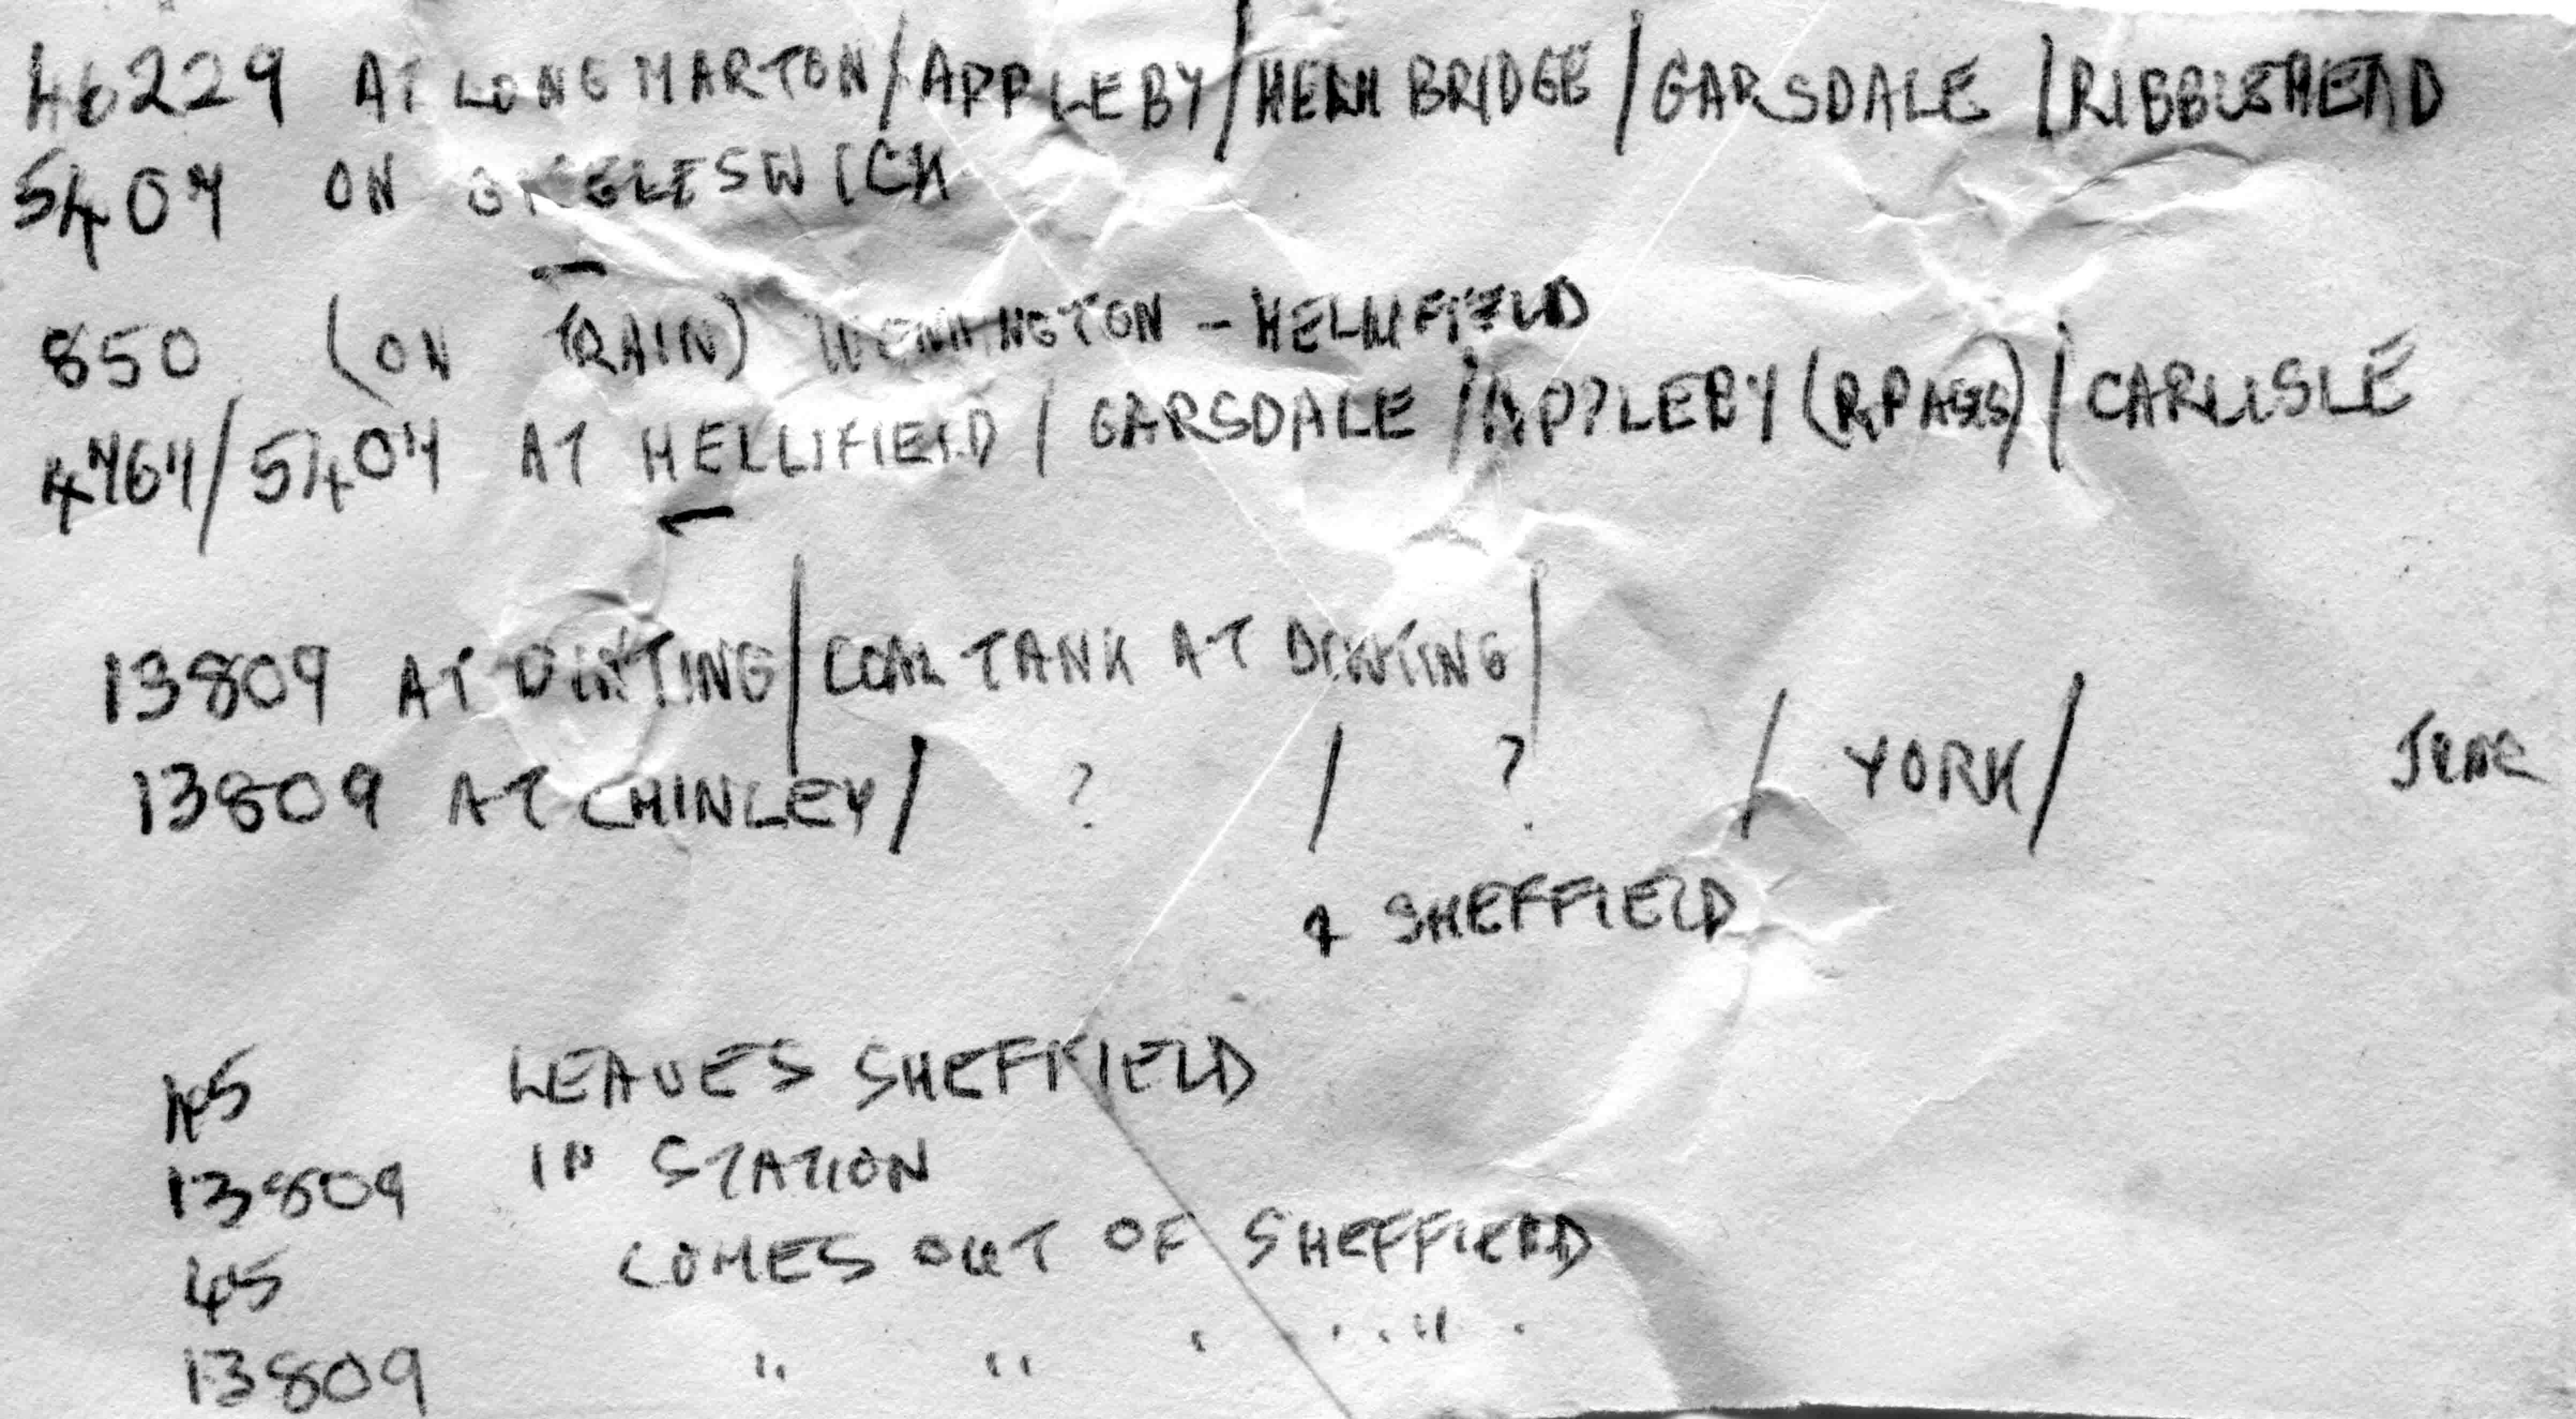 46229 AT LONG MARTON/APPLEBY/HELM BRIDGE/GARSDALE/RIBBLEHEAD
5407 ON GIGGLESWICK
850 (ON TRAIN) WENNINGTON - HELLIFIELD
4767/5407 AT HELLIFIELD/GARSDALE/APPLEBY (R PASS)/CARLISLE
13809 AT DINTING/COAL TANK AT DINTING/
13809 AT CHINLEY/ ? / ? / YORK/ June
& SHEFFIELD
45 LEAVES SHEFFIELD
13809 IN STATION
45 COMES OUT OF SHEFFIELD
13809 " " " "